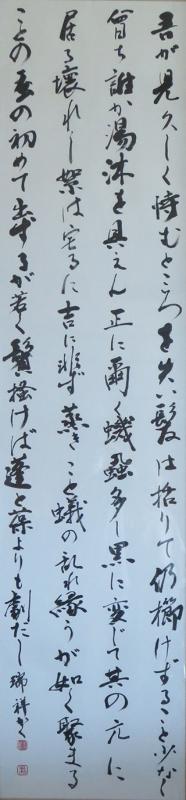 吾が児久しく恃むところを失い髪は括りて仍櫛けずること少なし
曾ち誰か湯沐を具えん正に爾く蟣蝨多し黒に変じて其の元に
居る壊れし絮は宅るに吉に非ず蒸きこと蟻の乱れ縁うが如く聚まる
ことの蚕の初めて出するが若く鬢掻けば蓬と葆よりも劇だし 瑞祥書